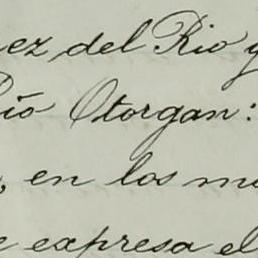 ez del Rio y
Pío Otorgan:
, en los m
e expresa el